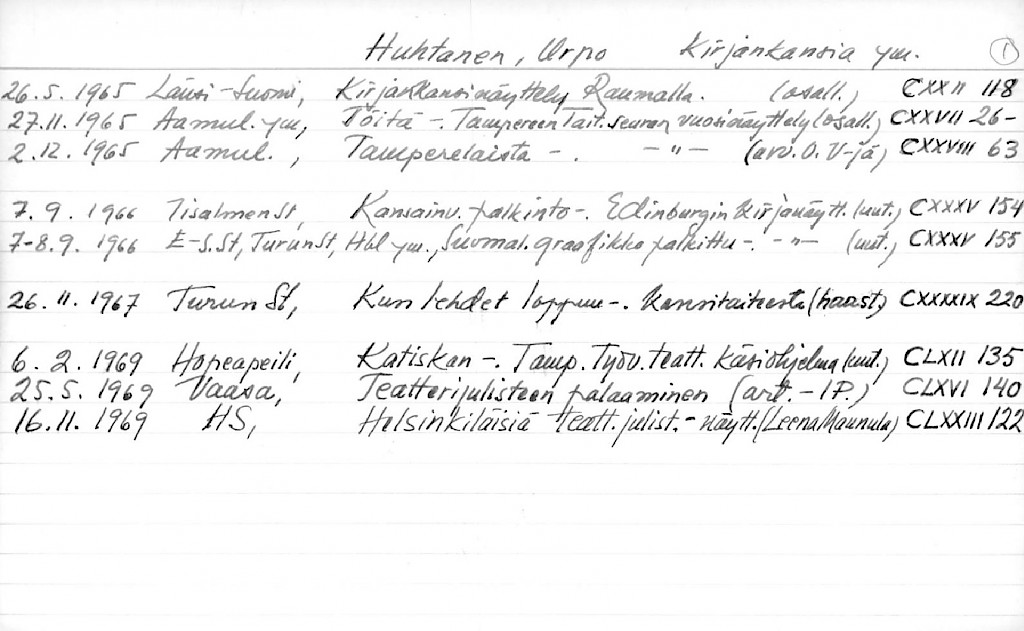 Huhtanen, Urpo Kirjankansia ym. 1
26.5.1965 Länsi-Suomi, Kirjankansinäyttely Raumalla. (osall.) CXXII 118
27.11.1965 Aamul. ym, Töitä -. Tampereen Tait. seuran vuosinäyttely (osall.) CXXVII 26-
2.12.1965 Aamul., Tamperelaista -. -"- (arv. O. V-jä) CXXVIII 63
7.9.1966 Iisalmen St, Kansainv. palkinto-. Edinburgin kirjanäytt. (uut.) CXXXV 154
7-8.9.1966 E-S.St, Turun St, Hbl ym., Suomal. graafikko palkittu-. -"- (uut.) CXXXV 155
26.11.1967 Turun St, Kun lehdet loppuu-. Kansitaiteesta (haast.) CXXXXIX 220
6.2.1969 Hopeapeili, Katiskan -. Tamp. Työv. teatt. käsiohjelma (uut.) CLXII 135
25.5.1969 Vaasa, Teatterijulisteen palaaminen (art. - IP.) CLXVI 140
16.11.1969 HS, Helsinkiläisiä teatt. julist. - näytt. (Leena Maunula) CLXXIII 122